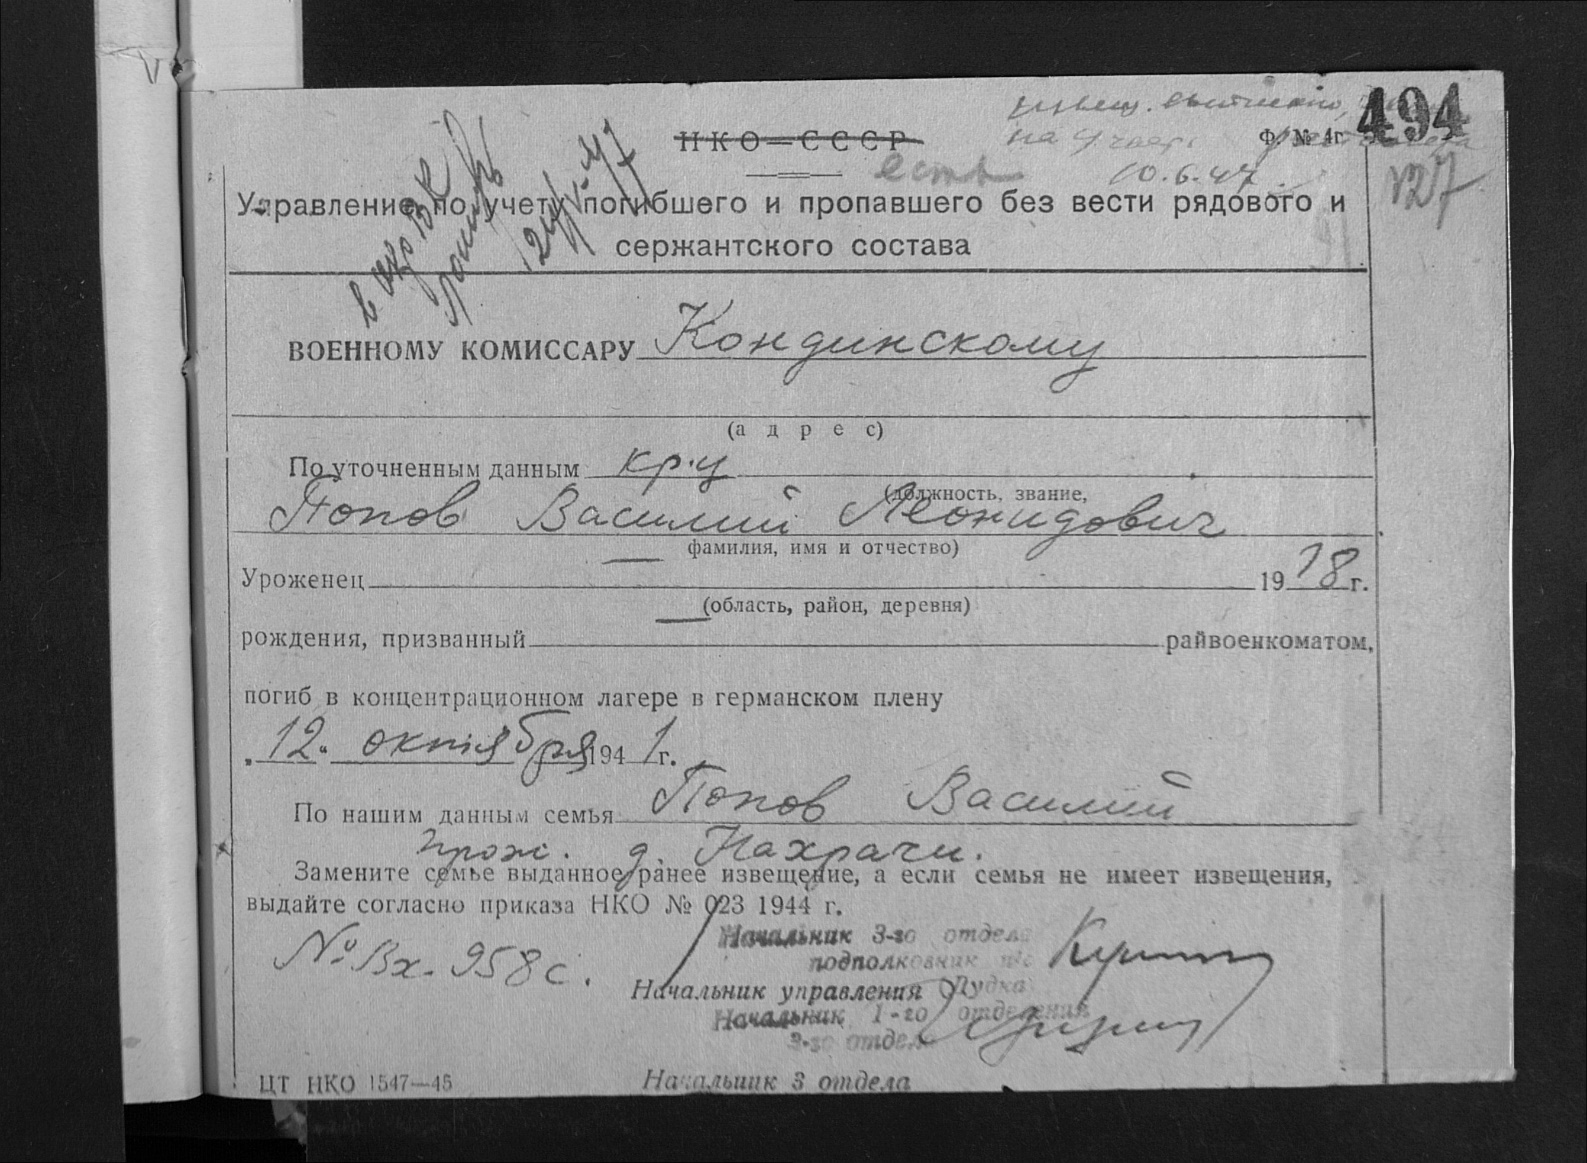 494
извещ. выписано,
на
Ф. № 4г.
НКО—СССР
есть
10.6.47
127
Управление по учету погибшего и пропавшего без вести рядового и
сержантского состава
ВОЕННОМУ КОМИССАРУ Кондинскому
(а д р е с)
По уточненным данным кр-ц
(должность, звание,
Попов Василий Леонидович
фамилия, имя и отчество)
Уроженец — 1918 г.
(область, район, деревня)
рождения, призванный — райвоенкоматом,
погиб в концентрационном лагере в германском плену
12. октября 1941 г.
По нашим данным семья Попов Василий
Прож. д. Нахрачи.
Замените семье выданное ранее извещение, а если семья не имеет извещения,
выдайте согласно приказа НКО № 023 1944 г.
Начальник 3-го отдела
№ Вх. 958с.
подполковник
Начальник управления (Дудка
Начальник 1-го отделения
3-го отдела
ЦТ НКО 1547—45
Начальник 3 отдела